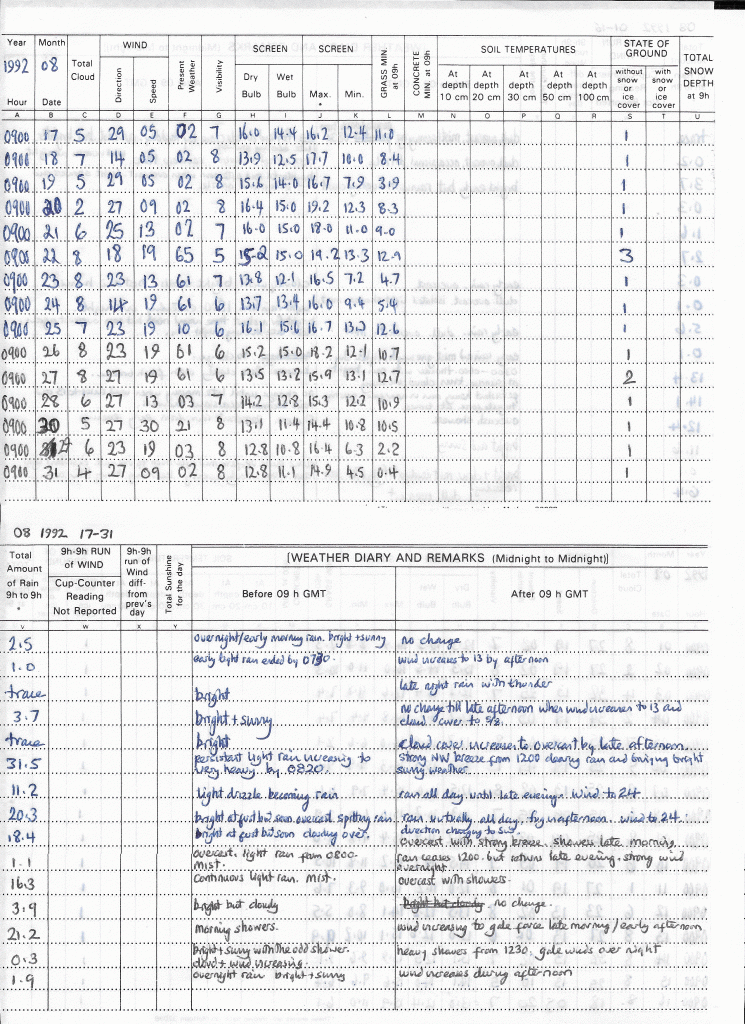 Year Month WIND SCREEN SCREEN SOIL TEMPERATURES STATE OF GROUND
1992 08 Total Cloud Direction Speed Present Weather Visibility Dry Bulb Wet Bulb Max. * Min. GRASS MIN. at 09h CONCRETE MIN. at 09h At depth 10 cm At depth 20 cm At depth 30 cm At depth 50 cm At depth 100 cm without snow or ice cover with snow or ice cover TOTAL SNOW DEPTH at 9h
Hour Date
A B C D E F G H I J K L M N O P Q R S T U
0900 17 5 29 05 02 7 16.0 14.4 16.2 12.4 11.0 1
0900 18 7 14 05 02 8 13.9 12.5 17.7 10.0 8.4 1
0900 19 5 29 05 02 8 15.6 14.0 16.7 7.9 3.9 1
0900 20 2 27 09 02 8 16.4 15.0 19.2 12.3 8.3 1
0900 21 6 25 13 02 7 16.0 15.0 18.0 11.0 9.0 1
0900 22 8 18 19 65 5 15.2 15.0 19.2 13.3 12.9 3
0900 23 8 23 13 61 7 13.8 12.1 16.5 7.2 4.7 1
0900 24 8 14 19 61 6 13.7 13.4 16.0 9.4 5.4 1
0900 25 7 23 19 10 6 16.1 15.6 16.7 13.0 12.6 1
0900 26 8 23 19 61 6 15.2 15.0 18.2 12.1 10.7 1
0900 27 8 27 19 61 6 13.5 13.2 15.9 13.1 12.7 2
0900 28 6 27 13 03 7 14.2 12.8 15.3 12.2 10.9 1
0900 30 5 27 30 21 8 13.1 11.4 14.4 10.8 10.5 1
0900 29 6 23 19 03 8 12.8 10.8 16.4 6.3 2.2 1
0900 31 4 27 09 02 8 12.8 11.1 14.9 4.5 0.4 1
08 1992 17-31
Total Amount of Rain 9h to 9h * 9h-9h RUN of WIND Cup-Counter Reading Not Reported 9h-9h run of Wind diff- from prev's day Total Sunshine for the day [WEATHER DIARY AND REMARKS (Midnight to Midnight)]
Before 09 h GMT After 09 h GMT
V W X Y
2.5 overnight/early morning rain. bright + sunny no change
1.0 early light rain ended by 0730. wind increases to 13 by afternoon
trace bright late night rain with thunder
3.7 bright + sunny no change till late afternoon when wind increases to 13 and cloud cover to 5/8.
trace bright cloud cover increases to overcast by late afternoon.
31.5 persistent light rain increasing to very heavy by 0820. strong NW breeze from 1200 clearing rain and bringing bright sunny weather.
11.2 light drizzle becoming rain rain all day until late evening. wind to 24.
20.3 bright at first but soon overcast. spitting rain. rain virtually all day, try in afternoon. wind to 24.
18.4 bright at first but soon clouding over. direction changing to SW. overcast with strong breeze. showers late morning.
1.1 overcast, light rain from 0800. mist. rain ceases 1200. but returns late evening, strong wind overnight.
16.3 continuous light rain. mist. overcast with showers.
3.9 bright but cloudy bright but cloudy. no change.
21.2 morning showers. wind increasing to gale force late morning / early afternoon
0.3 bright + sunny with the odd shower. cloud + wind increasing. heavy showers from 1230, gale winds over night
1.9 overnight rain bright + sunny wind increases during afternoon